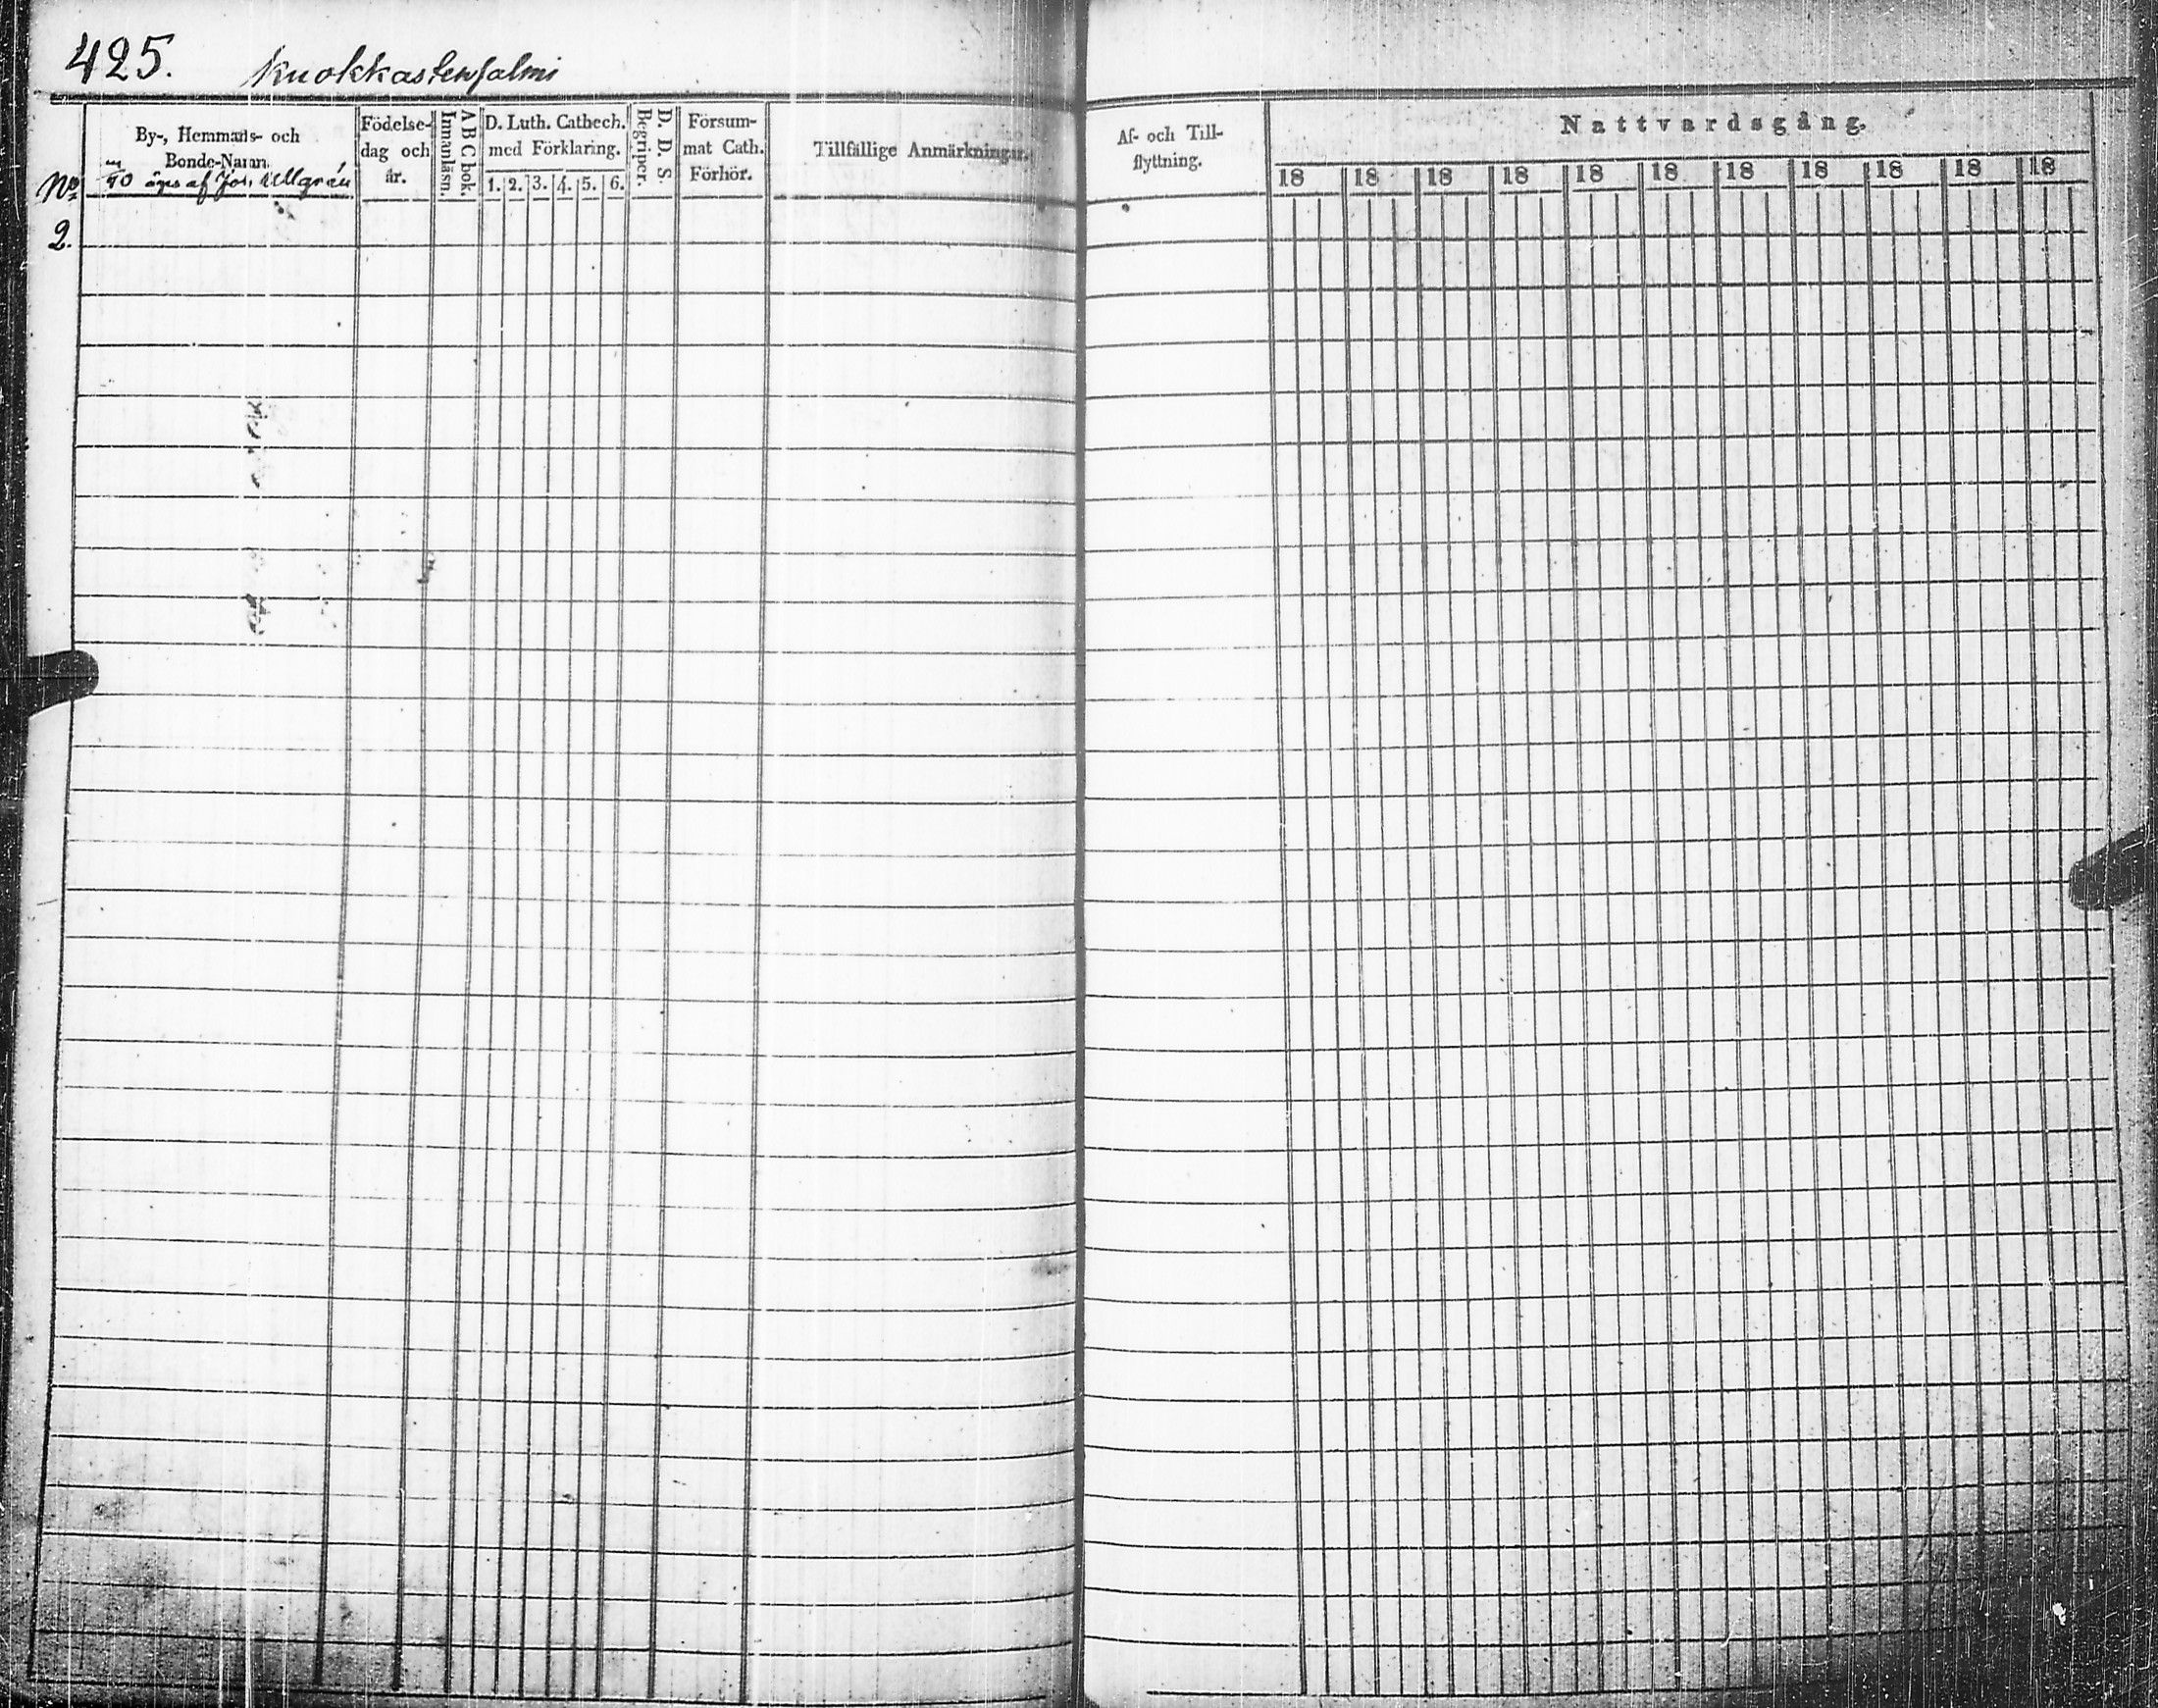 425. Kuokkastensalmi
By-, Hemmans- och
Bonde-Namn.
äges af Joh. Ullgrén
No
2.
Födelse-
dag och
år.
A B C bok.
Innanläsn.
D. Luth. Cathech.
med Förklaring.
1. 2. 3. 4. 5. 6.
D. D. S.
Begriper.
Försum-
mat Cath.
Förhör.
Tillfällige Anmärkningar.
Af- och Till-
flyttning.
Nattvardsgång.
18 18 18 18 18 18 18 18 18 18 18